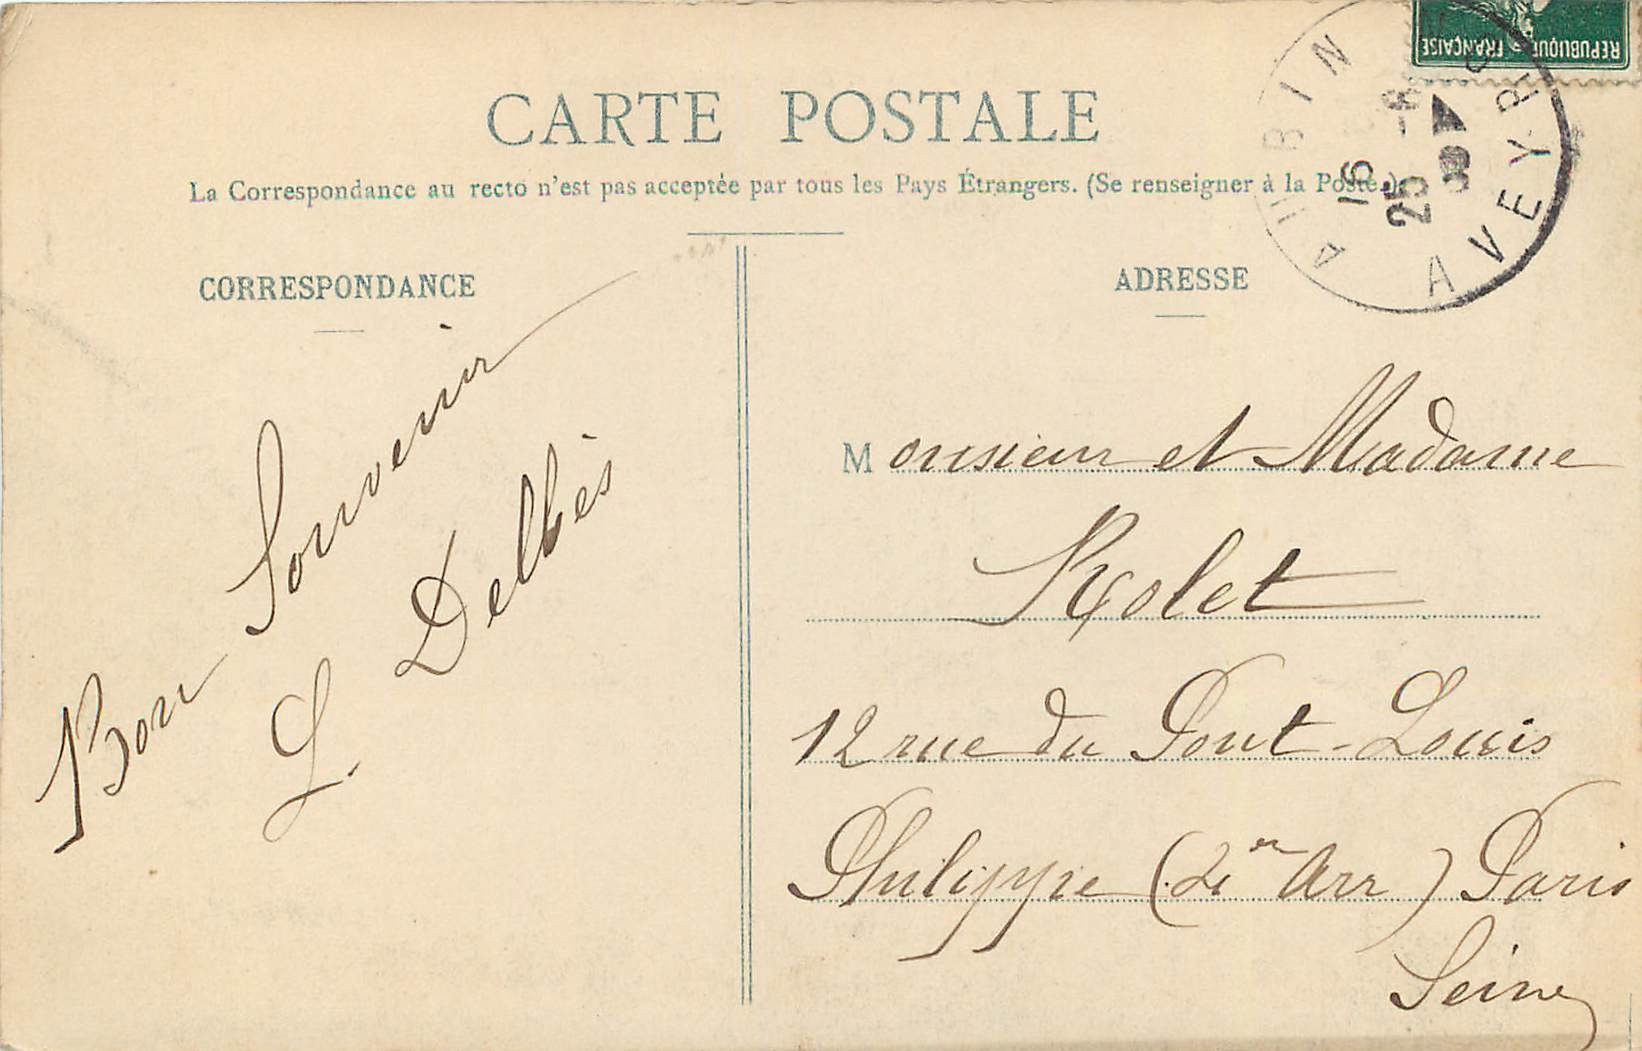 CARTE POSTALE
La Correspondance au recto n'est pas acceptée par tous les Pays Étrangers. (Se renseigner à la Poste.)
REPUBLIQUE FRANÇAISE
AUBIN
AVEYRON
16
25 -8
08
CORRESPONDANCE
Bon Souvenir
L. Delbès
ADRESSE
Monsieur et Madame
Rolet
12 rue du Pont-Louis
Philippe ( Arr) Paris
Seine